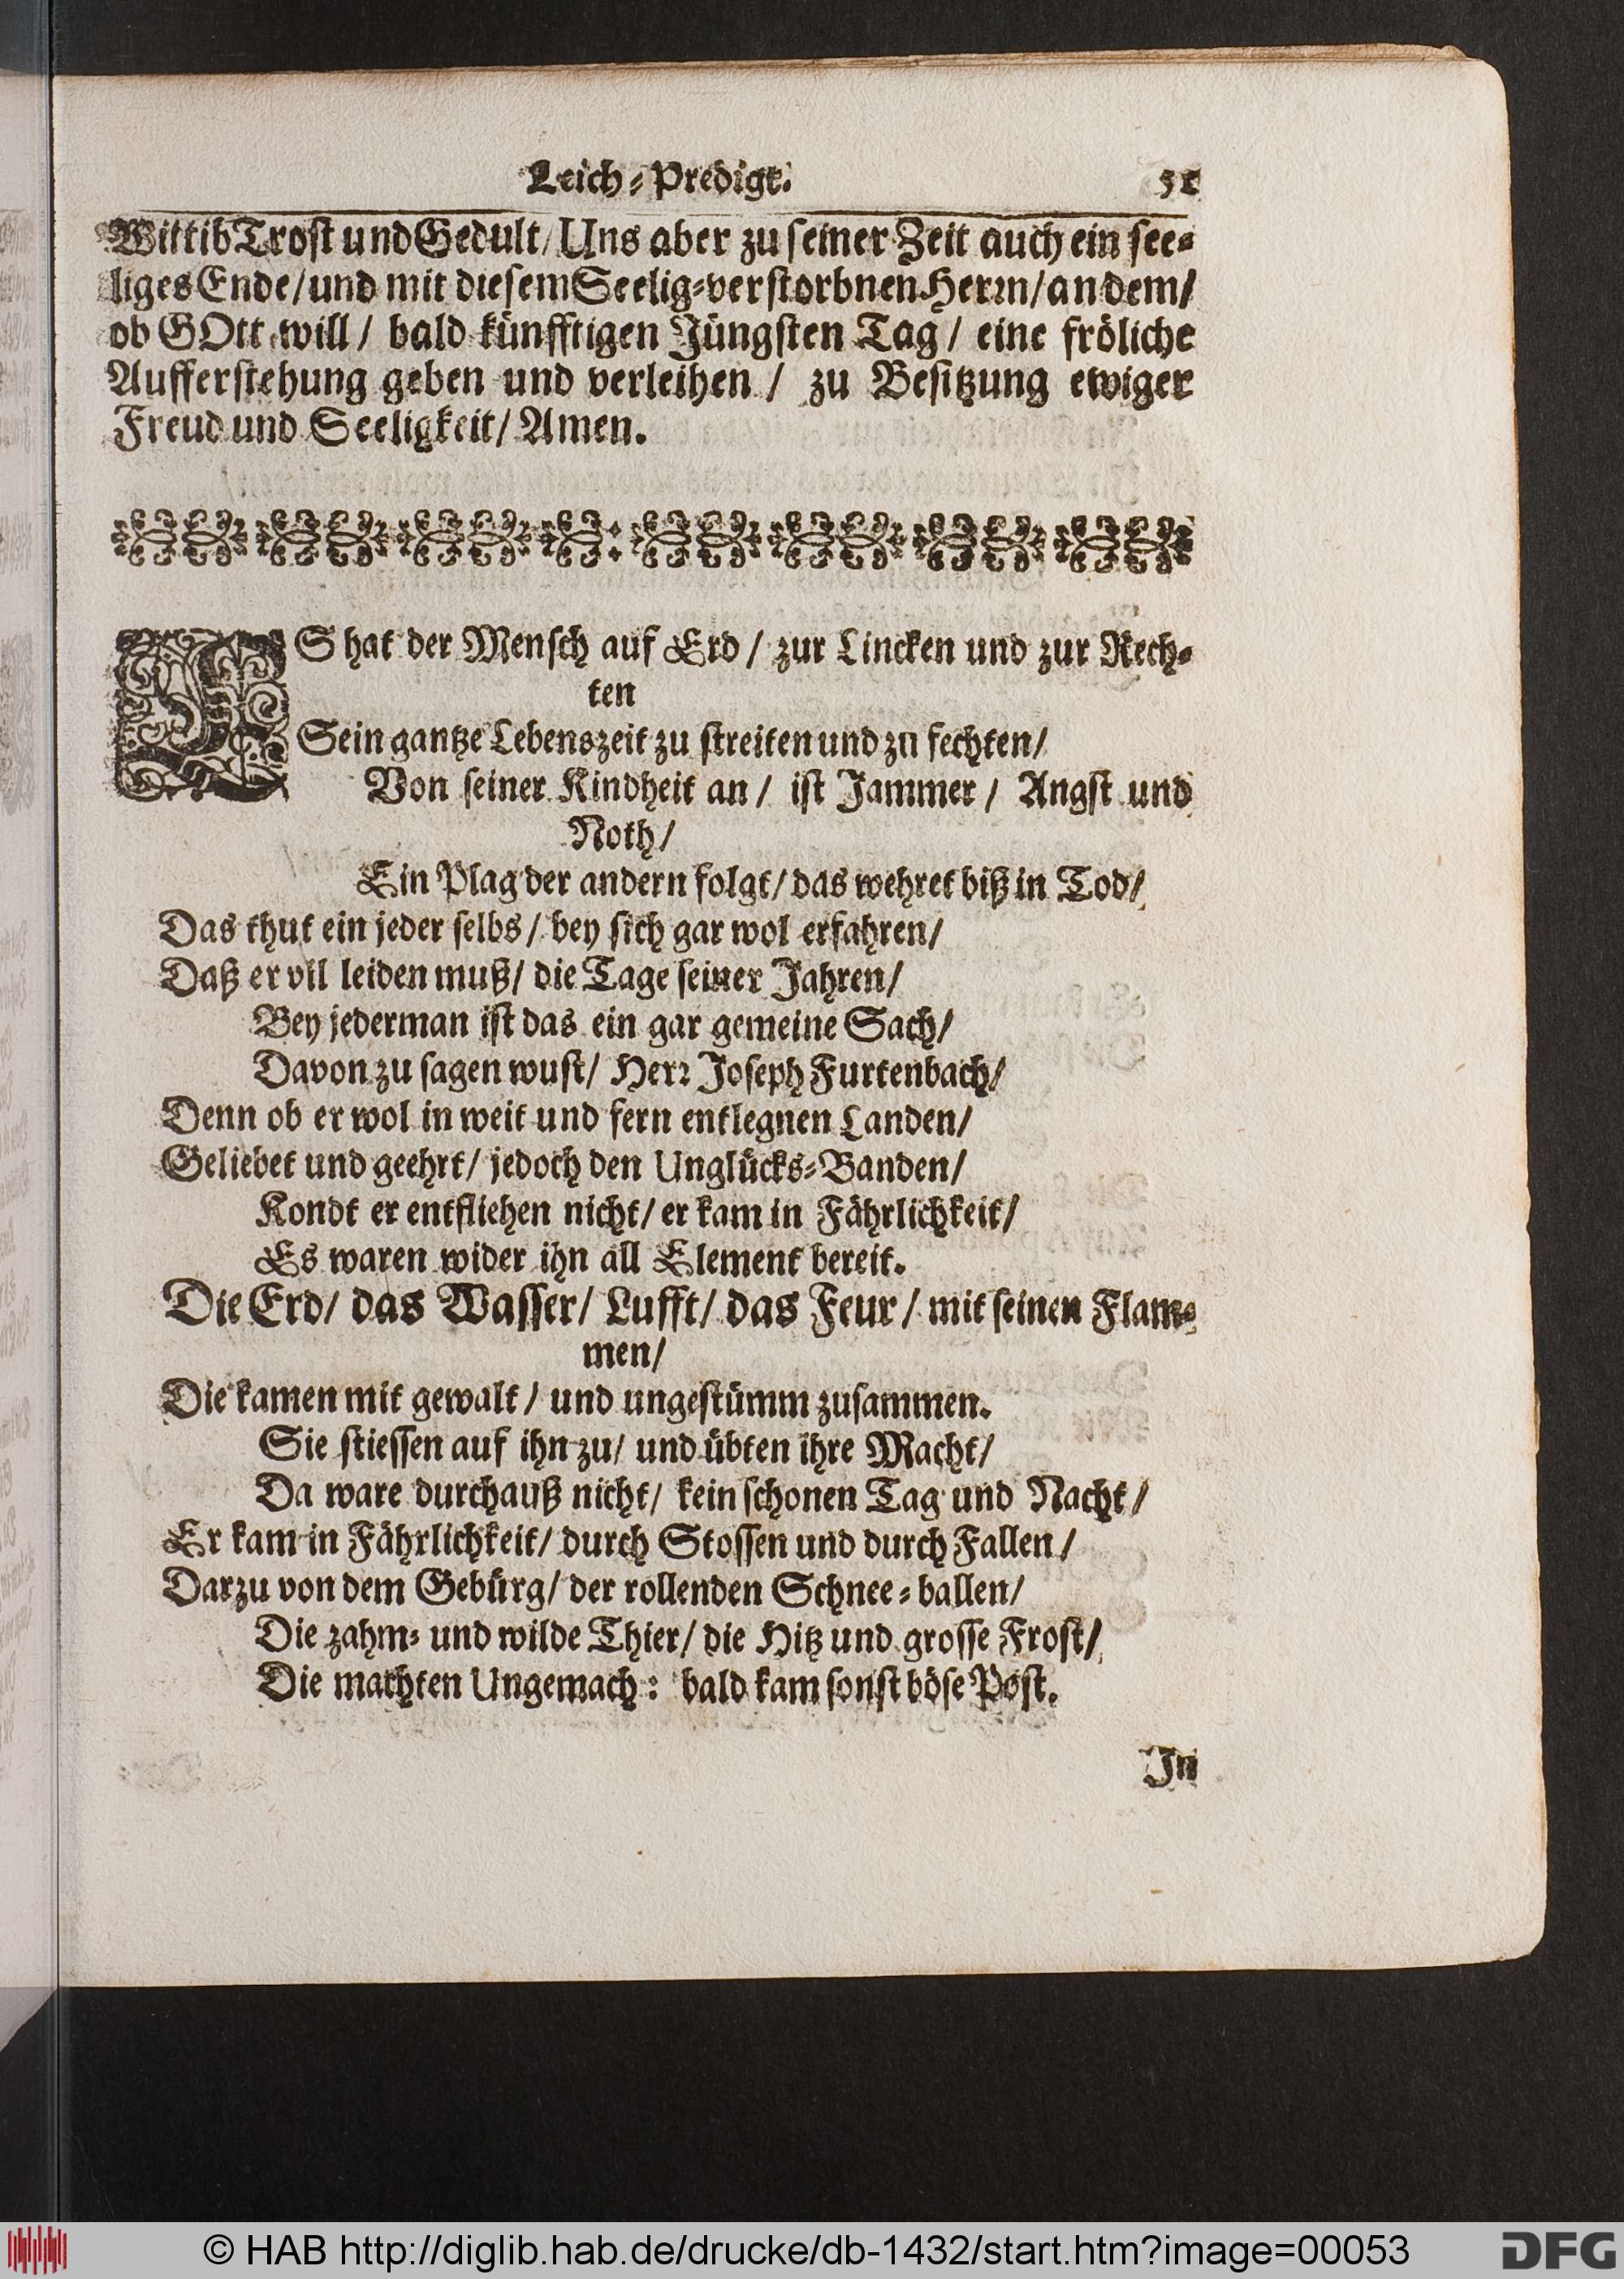 Leich-Predigt. 51
Wittib Trost und Gedult/ Uns aber zu seiner Zeit auch ein see-
liges Ende/ und mit diesem Seelig-verstorbnen Herrn/ an dem/
ob GOtt will/ bald künfftigen Jüngsten Tag/ eine fröliche
Aufferstehung geben und verleihen/ zu Besitzung ewiger
Freud und Seeligkeit/ Amen.
ES hat der Mensch auf Erd/ zur Lincken und zur Rech-
ten
Sein gantze Lebenszeit zu streiten und zu fechten/
Von seiner Kindheit an/ ist Jammer/ Angst und
Noth/
Ein Plag der andern folgt/ das wehret biß in Tod/
Das thut ein jeder selbs/ bey sich gar wol erfahren/
Daß er vil leiden muß/ die Tage seiner Jahren/
Bey jederman ist das ein gar gemeine Sach/
Davon zu sagen wust/ Herr Joseph Furtenbach/
Denn ob er wol in weit und fern entlegnen Landen/
Geliebet und geehrt/ jedoch den Unglücks-Banden/
Kondt er entfliehen nicht/ er kam in Fährlichkeit/
Es waren wider ihn all Element bereit.
Die Erd/ das Wasser/ Lufft/ das Feur/ mit seinen Flam-
men/
Die kamen mit gewalt/ und ungestümm zusammen.
Sie stiessen auf ihn zu/ und übten ihre Macht/
Da ware durchauß nicht/ kein schonen Tag und Nacht/
Er kam in Fährlichkeit/ durch Stossen und durch Fallen/
Darzu von dem Gebürg/ der rollenden Schnee-ballen/
Die zahm- und wilde Thier/ die Hitz und grosse Frost/
Die machten Ungemach: bald kam sonst böse Post.
In
© HAB http://diglib.hab.de/drucke/db-1432/start.htm?image=00053 DFG